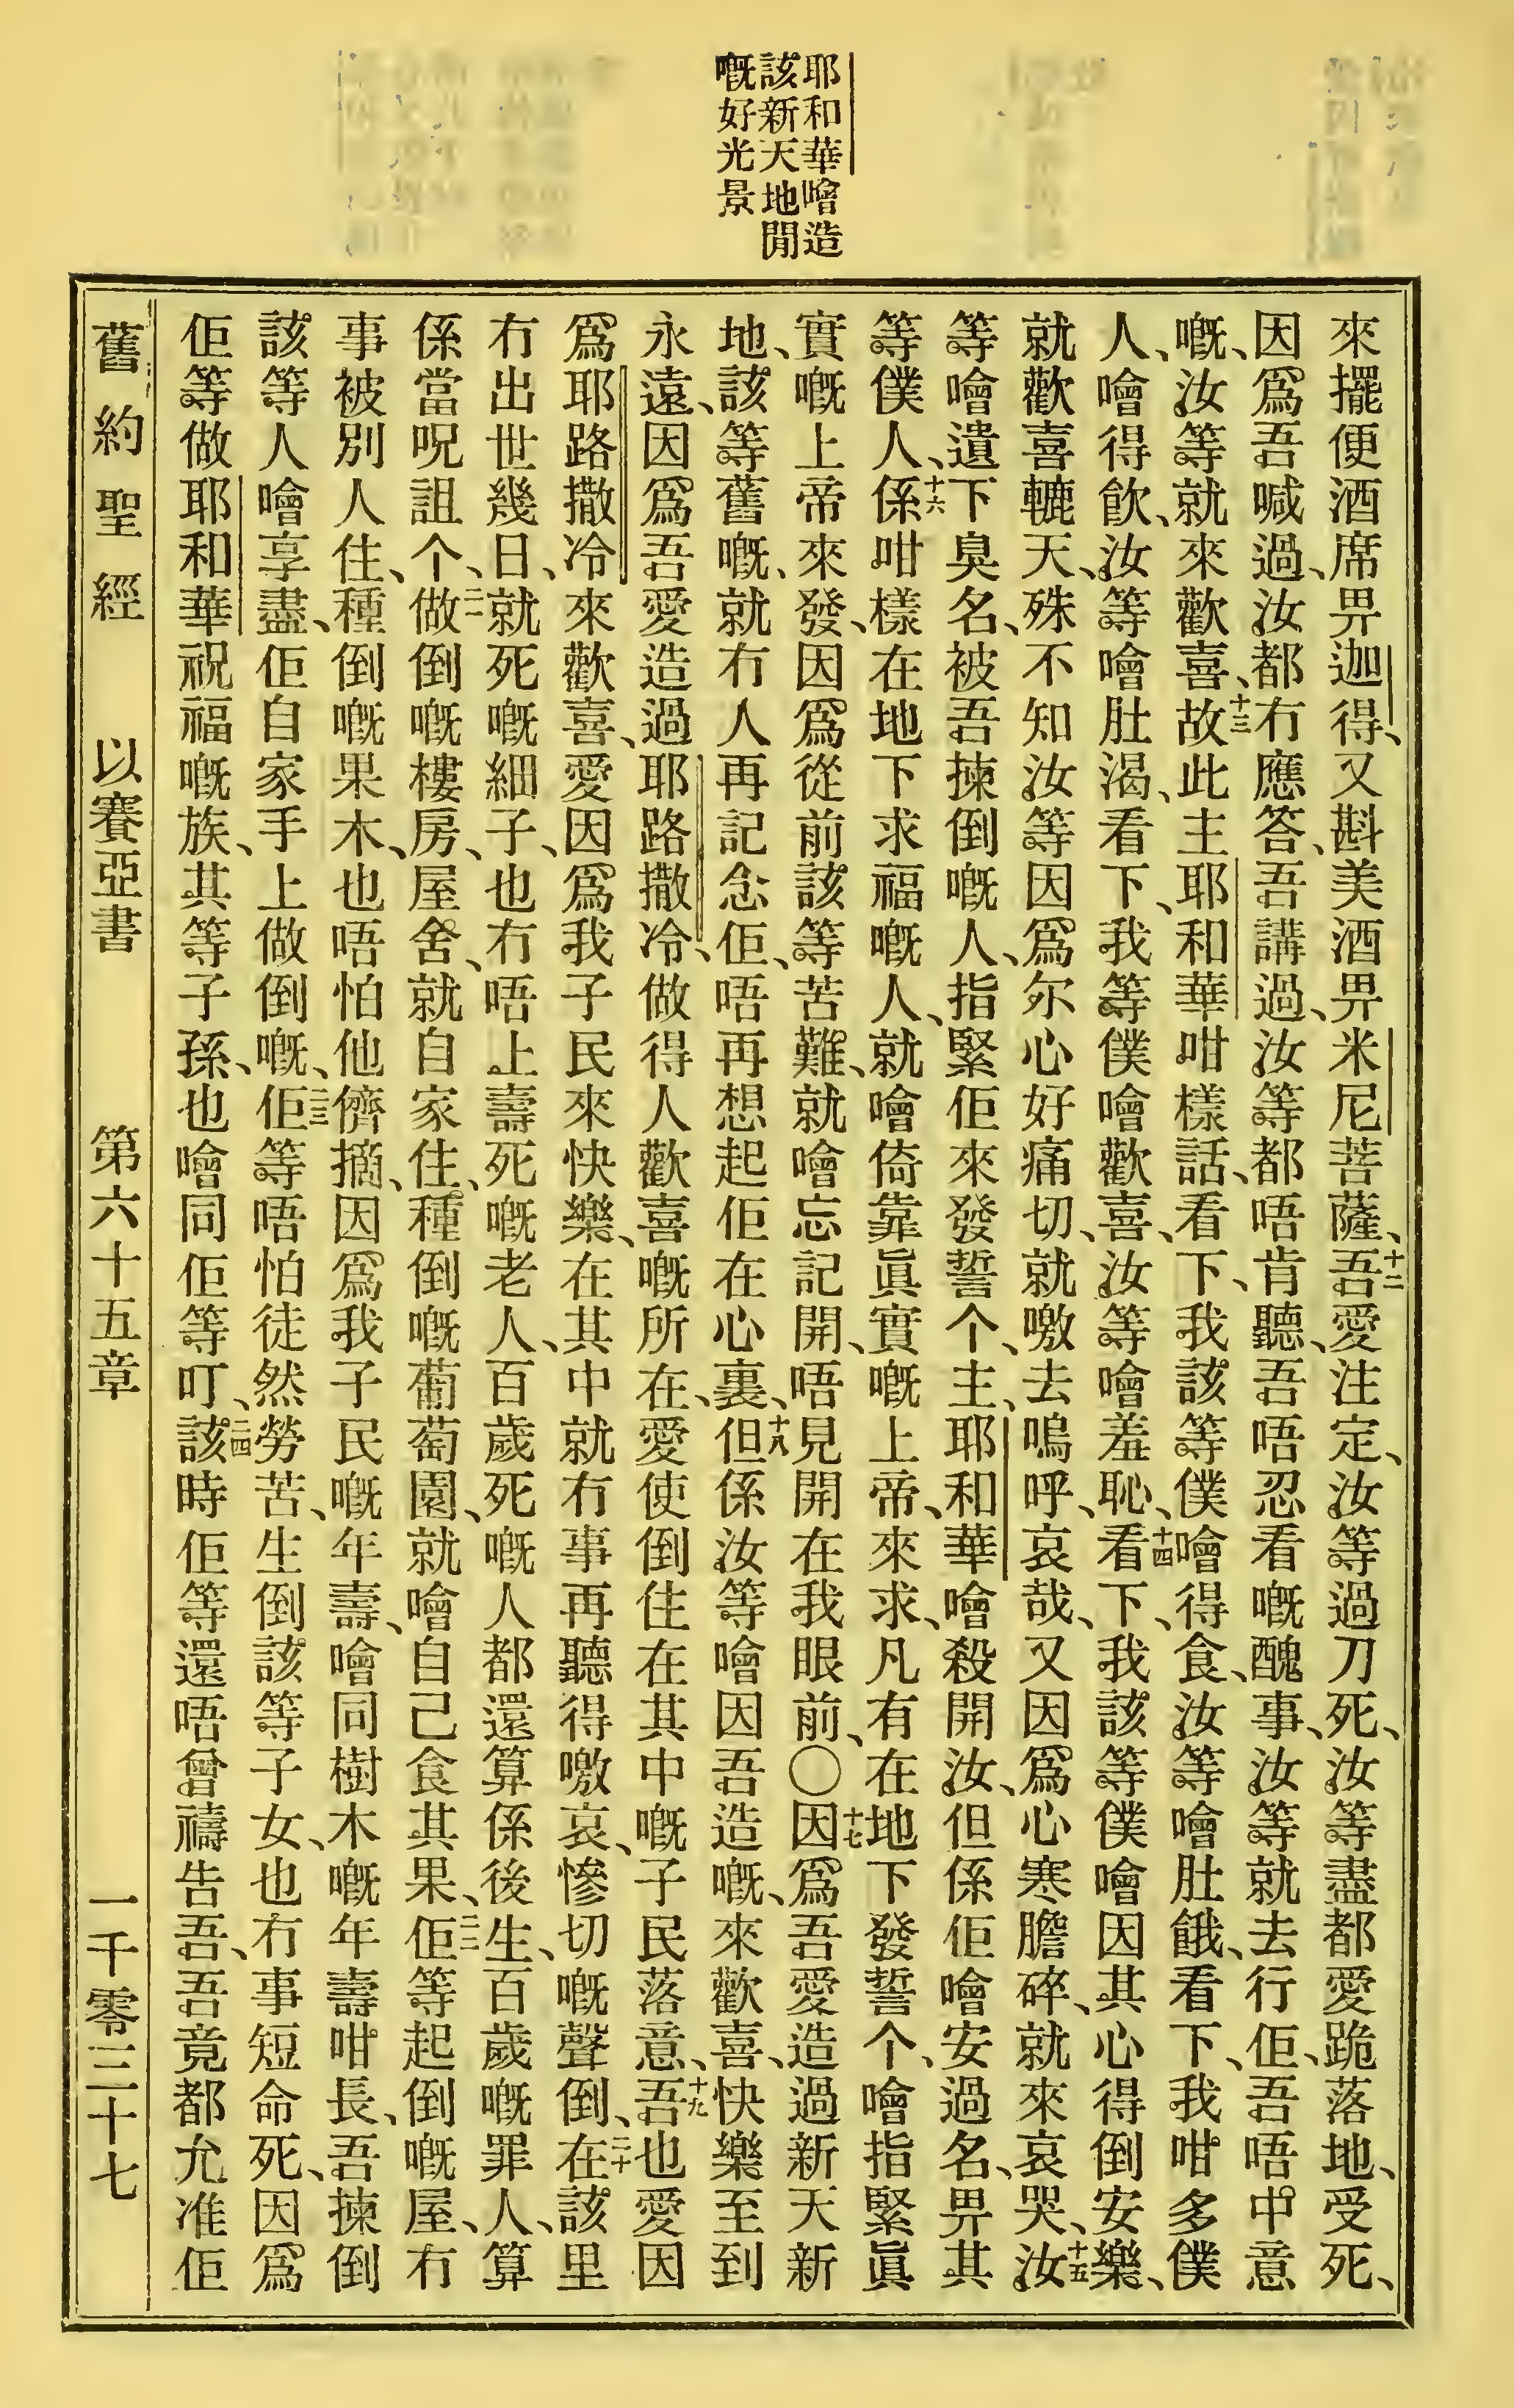 耶和華噲造
該新天地閒
嘅好光景
來擺便酒席畀迦得、又斟美酒畀米尼菩薩、十二吾愛注定、汝等過刀死、汝等盡都愛跪落地、受死、
因爲吾喊過、汝都冇應答、吾講過、汝等都唔肯聽、吾唔忍看嘅醜事、汝等就去行佢、吾唔中意
嘅、汝等就來歡喜、十三故此主耶和華咁樣話、看下、我該等僕噲得食、汝等噲肚餓、看下、我咁多僕
人、噲得飲、汝等噲肚渴、看下、我等僕噲歡喜、汝等噲羞恥、十四看下、我該等僕噲因其心得倒安樂、
就歡喜轆天、殊不知汝等因爲尔心好痛切、就噭去嗚呼、哀哉、又因爲心寒膽碎、就來哀哭、十五汝
等噲遺下臭名、被吾揀倒嘅人、指緊佢來發誓个、主、耶和華噲殺開汝、但係佢噲安過名、畀其
等僕人、十六係咁樣在地下求福嘅人、就噲倚靠眞實嘅上帝、來求、凡有在地下發誓个、噲指緊眞
實嘅上帝來發、因爲從前該等苦難、就噲忘記開、唔見開在我眼前、〇十七因爲吾愛造過新天新
地、該等舊嘅、就冇人再記念佢、唔再想起佢在心裏、十八但係汝等噲因吾造嘅、來歡喜、快樂至到
永遠、因爲吾愛造過耶路撒冷、做得人歡喜嘅所在、愛使倒住在其中嘅子民落意、十九吾也愛因
爲耶路撒冷來歡喜、愛因爲我子民來快樂、在其中就冇事再聽得噭哀、慘切嘅聲倒、二十在該里
冇出世幾日、就死嘅細子、也冇唔上壽死嘅老人、百歲死嘅人都還算係後生、百歲嘅罪人、算
係當呪詛个、二一做倒嘅樓房、屋舍、就自家住、種倒嘅葡萄園、就噲自己食其果、二二佢等起倒嘅屋、冇
事被別人住、種倒嘅果木、也唔怕他儕摘、因爲我子民嘅年壽、噲同樹木嘅年壽咁長、吾揀倒
該等人噲享盡、佢自家手上做倒嘅、二三佢等唔怕徒然勞苦、生倒該等子女、也冇事短命死、因爲
佢等做耶和華祝福嘅族、其等子孫、也噲同佢等叮、二四該時佢等還唔曾禱告吾、吾竟都允准佢
舊約聖經 以賽亞書 第六十五章 一千零三十七